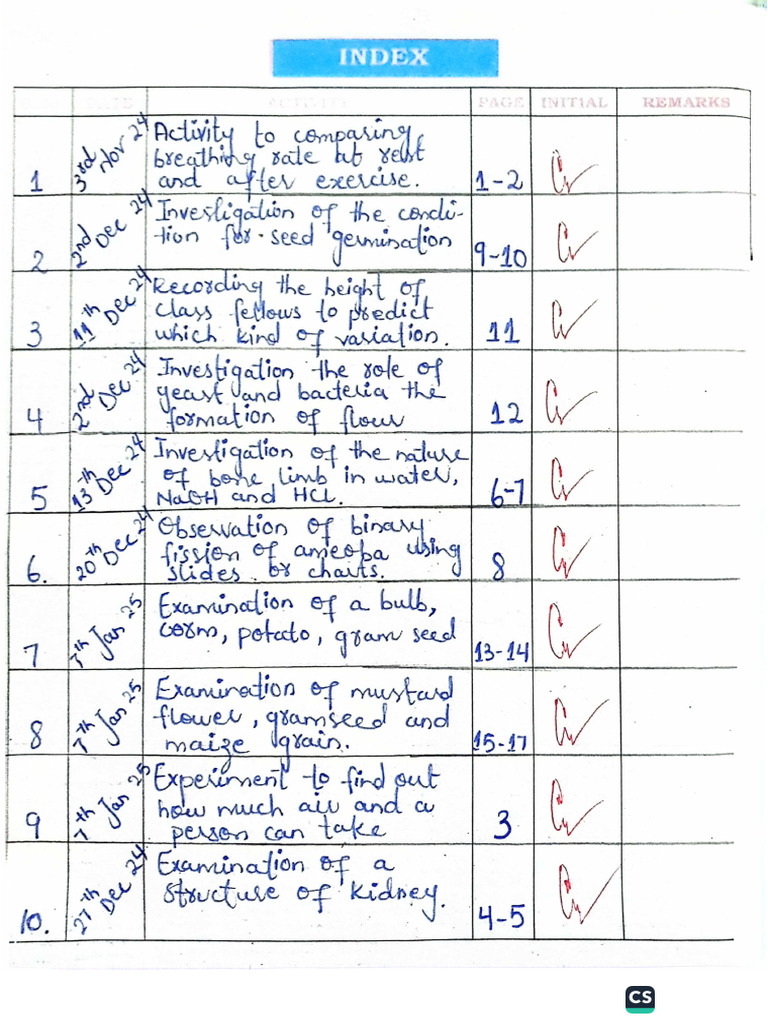 INDEX
DATE ACTIVITY PAGE INITIAL REMARKS
1 3rd Nov 24 Activity to comparing
breathing rate at rest
and after exercise. 1-2
2 2nd Dec 24 Investigation of the condi-
tion for seed germination 9-10
3 11th Dec 24 Recording the height of
class fellows to predict
which kind of variation. 11
4 2nd Dec 24 Investigation the role of
yeast and bacteria the
formation of flour 12
5 13th Dec 24 Investigation of the nature
of bone limb in water,
NaOH and HCL. 6-7
6. 20th Dec 24 Observation of binary
fission of ameoba using
slides or charts. 8
7 7th Jan 25 Examination of a bulb,
corm, potato, gram seed 13-14
8 7th Jan 25 Examination of mustard
flower, gramseed and
maize grain. 15-17
9 7th Jan 25 Experiment to find out
how much air and a
person can take 3
10. 27th Dec 24 Examination of a
structure of kidney. 4-5
CS